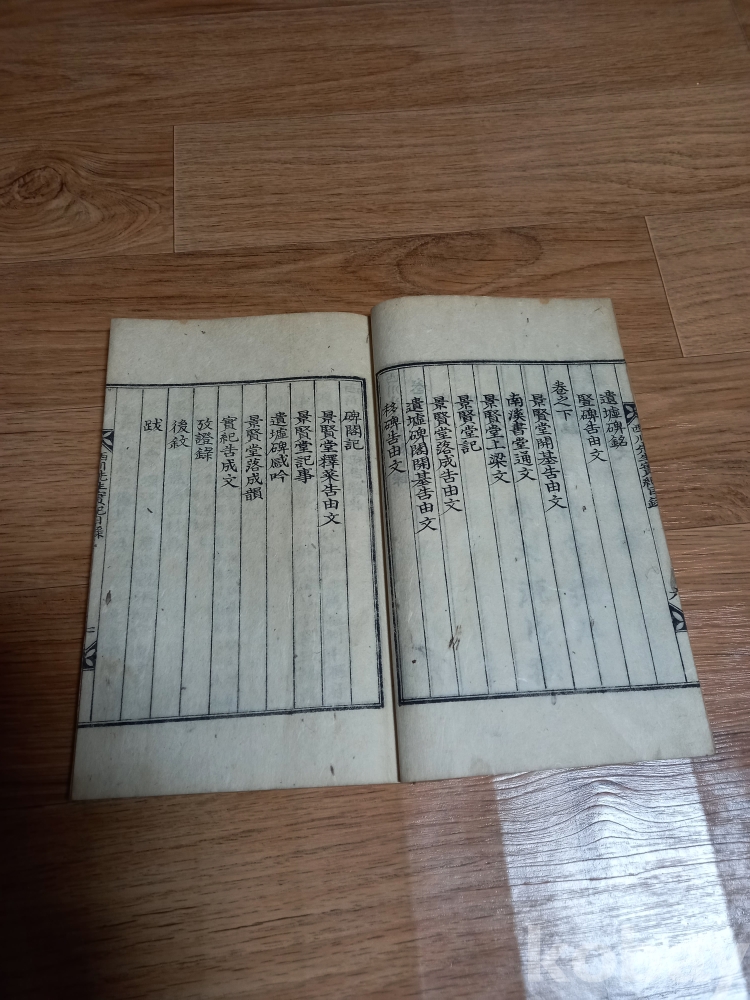 遺墟碑銘
竪碑告由文
卷之下
景賢堂開基告由文
南溪書堂通文
景賢堂上梁文
景賢堂記
景賢堂落成告由文
遺墟碑閣開基告由文
移碑告由文
碑閣記
景賢堂釋菜告由文
景賢堂記事
遺墟碑感吟
景賢堂落成韻
實紀告成文
攷證錄
後敘
跋
西川先生實紀目錄
二